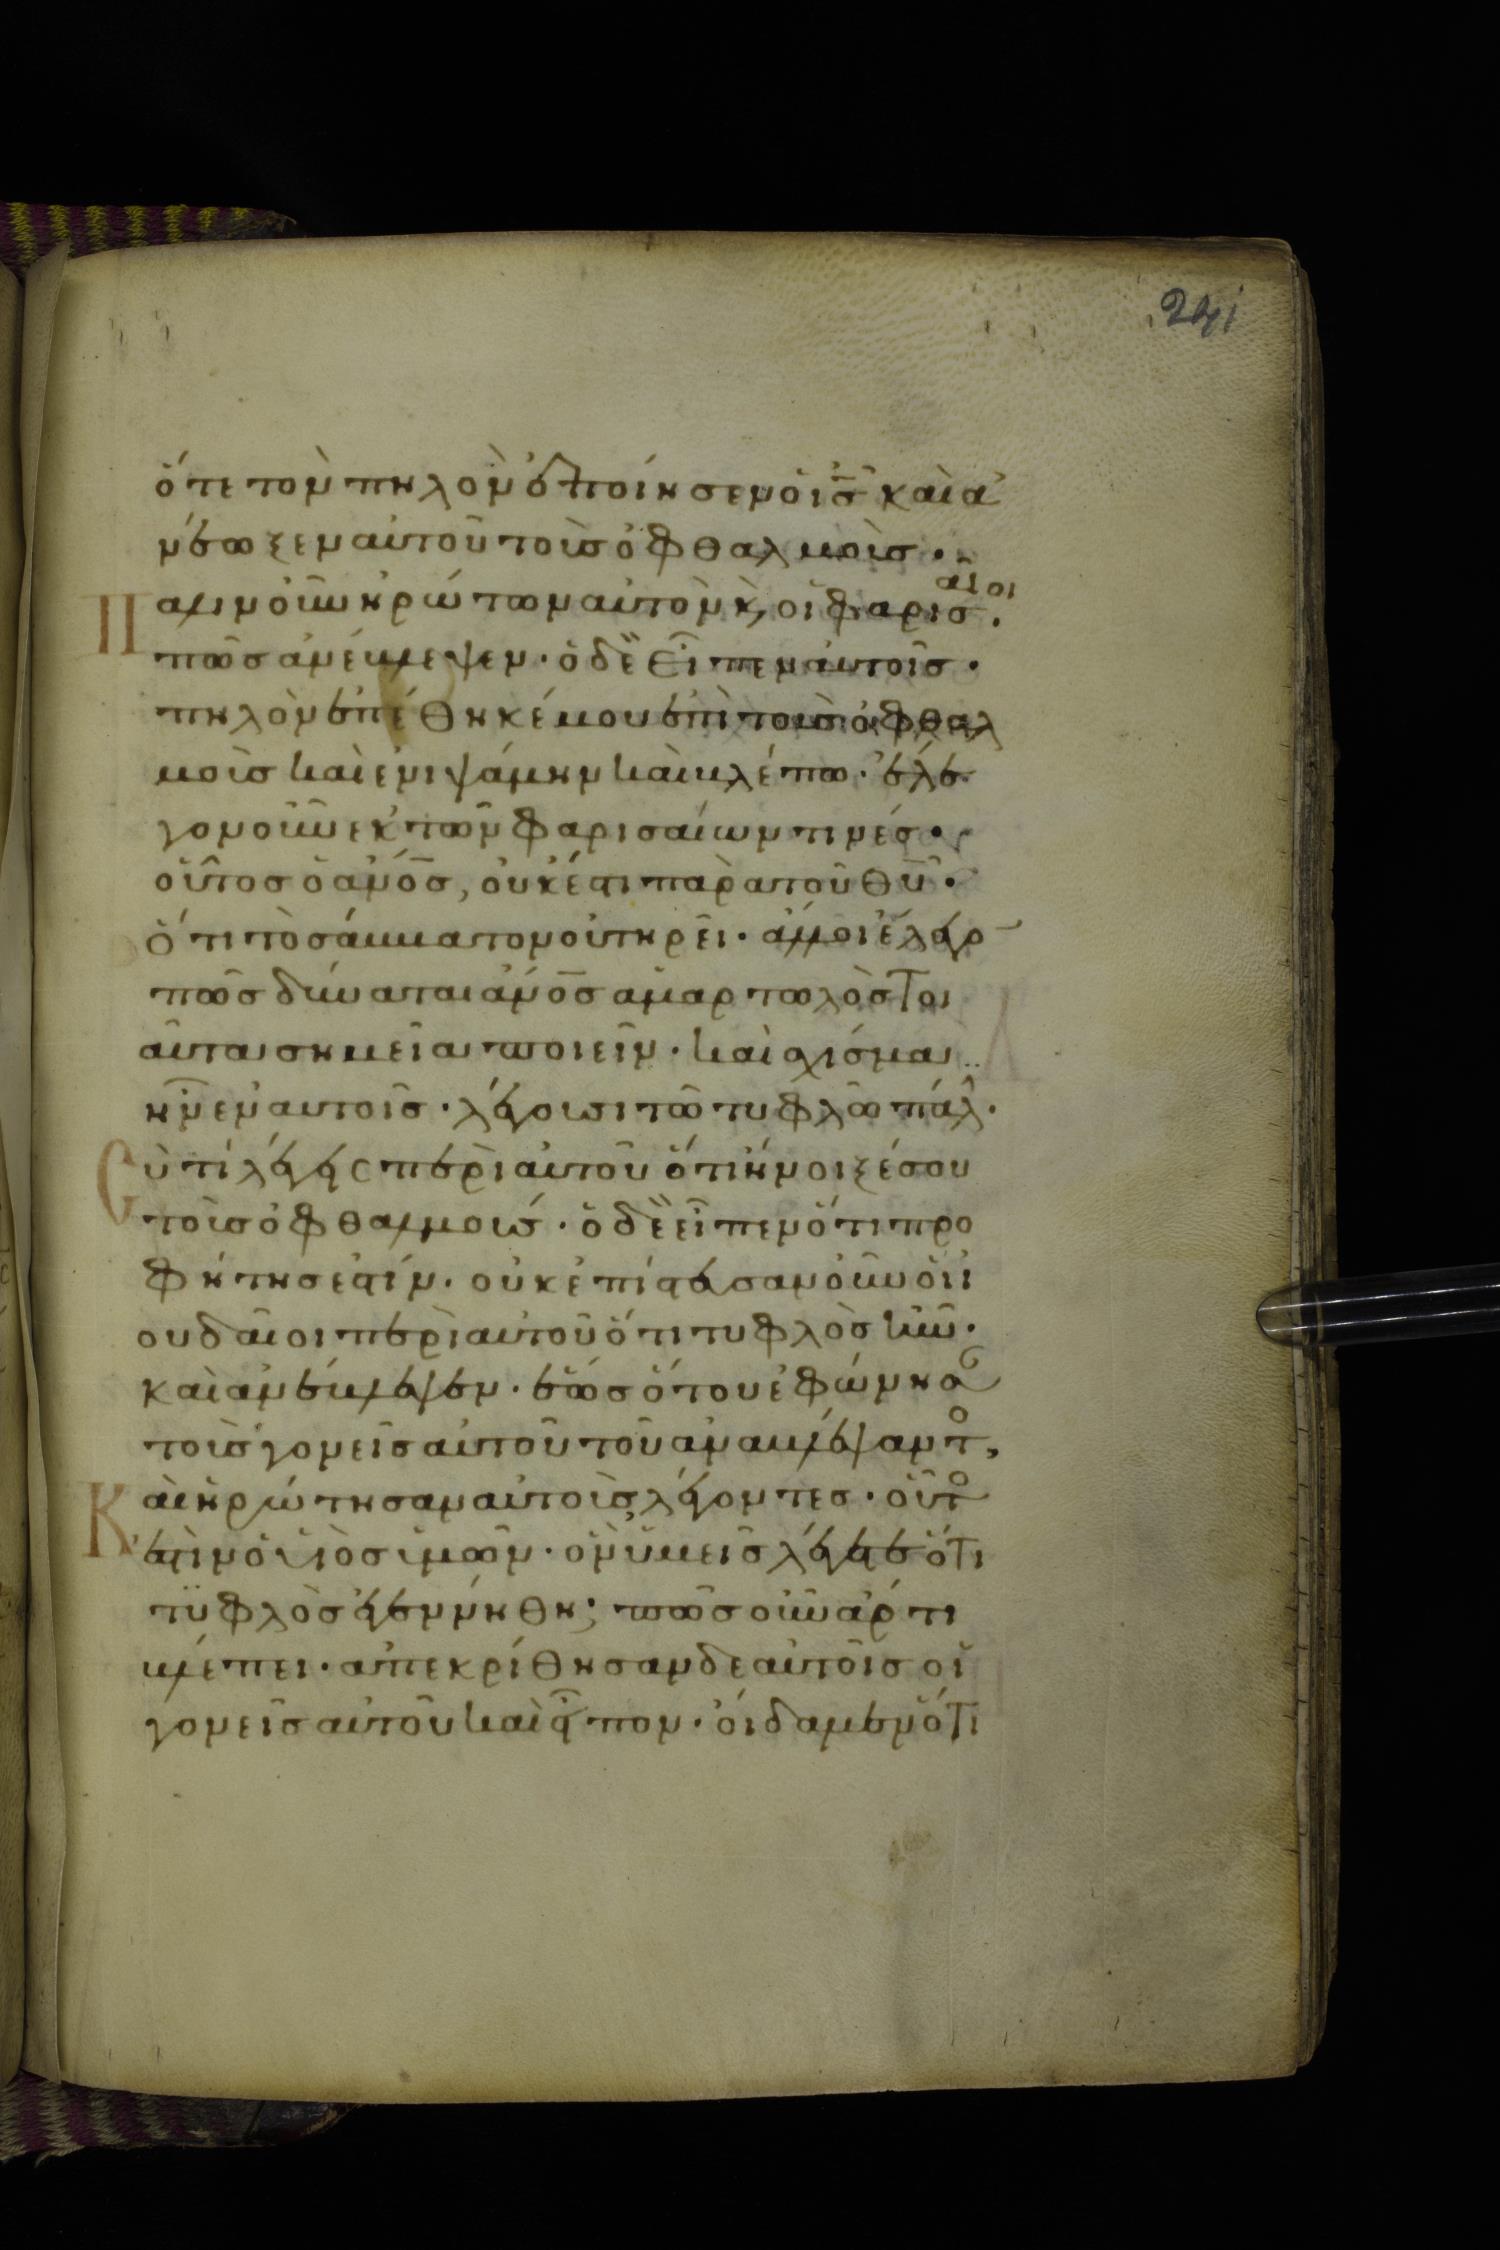 241
ὅτε τὸν πηλὸν ἐποίησεν ὁ ις̅ καὶ ἀ
νέωξεν αὐτοῦ τοὺς ὀφθαλμοὺς·
Παλιν οὖν ἠρώτων αὐτὸν κ̀, οἱ φαρισαῖοι·
πῶς ἀνέβλεψεν· ὁ δὲ εἶπεν αὐτοῖς·
πηλὸν ἐπέθηκέ μου ἐπὶ τοὺς ὀφθαλ
μοὺς καὶ ἐνιψάμην καὶ βλέπω· ἔλε
γον οὖν ἐκ τῶν φαρισαίων τινές·
οὗτος ὁ ἀνο̅ς, οὐκ ἔστι παρὰ τοῦ θυ̅·
ὅτι τὸ σάββατον οὐ τηρεῖ· ἄλλοι ἔλεγον
πῶς δύναται ἀνο̅ς ἁμαρτωλὸς τοι
αῦτα σημεῖα ποιεῖν· καὶ σχίσμα
ἦν ἐν αὐτοῖς· λέγουσι τῶ τυφλῶ πάλ·
Σὺ τί λέγεις περὶ αὐτοῦ ὅτι ἤνοιξέ σου
τοὺς ὀφθαλμούς· ὁ δὲ εἶπεν ὅτι προ
φήτης ἐστίν· οὐκ ἐπίστευσαν οὖν οἱ ἰ
ουδαῖοι περὶ αὐτοῦ ὅτι τυφλὸς ἦν·
καὶ ἀνέβλεψεν· ἕως ὅτου ἐφώνησ
τοὺς γονεῖς αὐτοῦ τοῦ ἀναβλέψαντο,
Καὶ ἠρώτησαν αὐτοὺς λέγοντες· οὗτο
ἐστὶν ὁ υἱὸς ὑμῶν· ὃν ὑμεῖς λέγετε ὅτι
τυφλὸς ἐγεννήθη; πῶς οὖν ἄρτι
βλέπει· ἀπεκρίθησαν δὲ αὐτοῖς οἱ
γονεῖς αὐτοῦ καὶ εἶπον· οἴδαμεν ὅτι